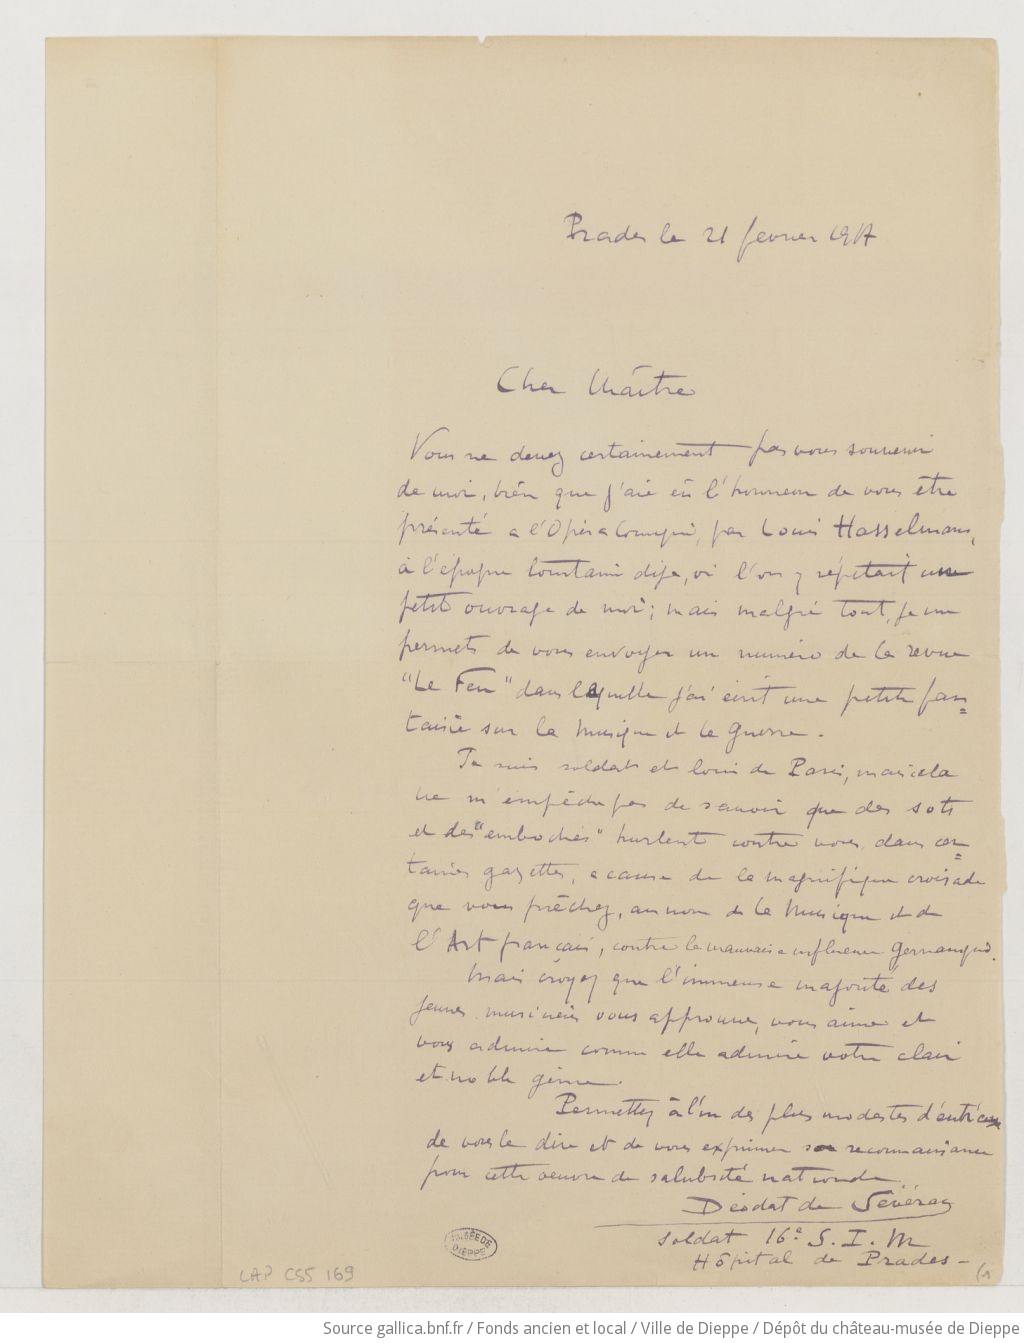 Prades le 21 février 1917
Cher Maître
Vous ne devez certainement pas vous souvenir
de moi, bien que j'aie eu l'honneur de vous être
présenté a l'Opéra Comique, par Louis Hasselmans,
à l'époque lointaine dejà, où l'on y répétait une
petit ouvrage de moi; mais malgré tout, je me
permets de vous envoyer un numéro de la revue
"Le Feu" dans laquelle j'ai écrit une petite fan=
taisie sur la Musique et la Guerre.
Je suis soldat et loin de Paris, mais cela
ne m'empêche pas de savoir que des sots
et des "embochés" hurlent contre vous dans cer=
taines gazettes, a cause de la magnifique croisade
que vous prêchez, au nom de la Musique et de
l'Art français, contre la mauvaise influence Germanique.
Mais croyez que l'immense majorité des
jeunes musiciens vous approuve, vous aime et
vous admire comme elle admire votre clair
et noble génie.
Permettez à l'un des plus modestes d'entr'eux
de vous le dire et de vous exprimer sa reconnaissance
pour cette oeuvre de salubrité nationale.
Déodat de Sévérac
soldat 16e S. I. M
Hôpital de Prades -
MUSÉE DE
DIEPPE
LAP CS5 169
(1
Source gallica.bnf.fr / Fonds ancien et local / Ville de Dieppe / Dépôt du château-musée de Dieppe